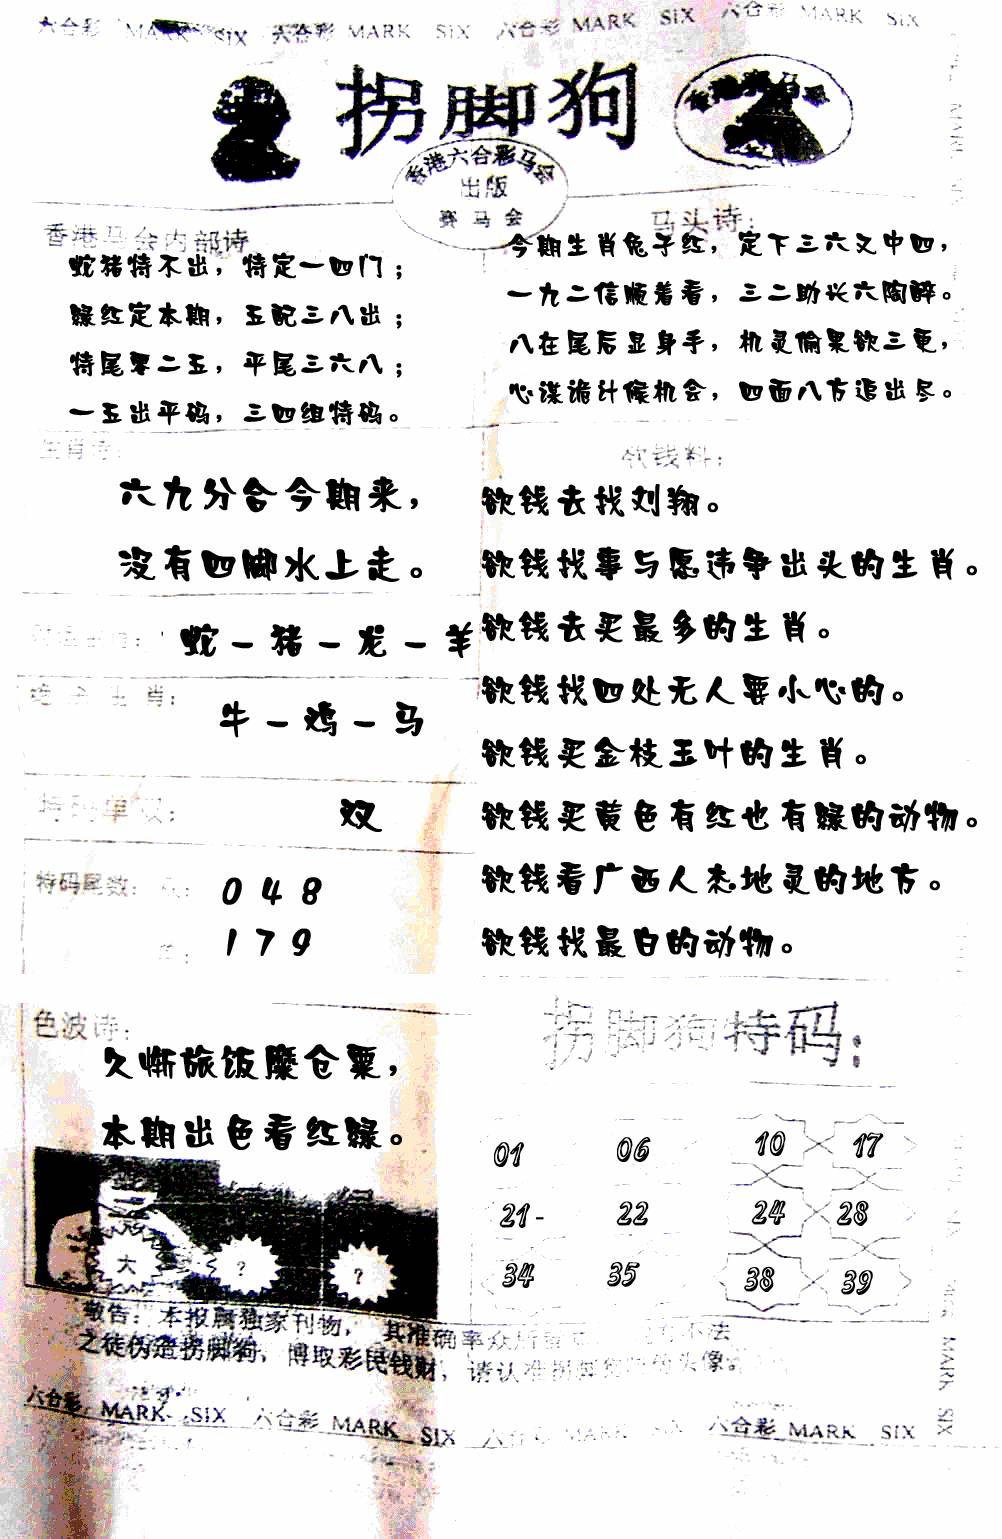 六合彩 MARK SIX 六合彩 MARK SIX 六合彩 MARK SIX 六合彩 MARK SIX
拐脚狗
香港六合彩马会
出版
赛马会
香港马会内部诗
蛇猪特不出，特定一四门；
绿红定本期，五配三八出；
特尾零二五，平尾三六八；
一五出平码，三四组特码。
马头诗：
今期生肖兔子红，定下三六又中四，
一九二信顺着看，三二助长六陶醉。
八在尾后显身手，机灵偷果欲三更，
心谋诡计候机会，四面八方追出尽。
生肖诗：
六九分合今期来，
没有四脚水上走。
蛇－猪－龙－羊
生肖：
牛－鸡－马
特码单双：
双
特码尾数：
0 4 8
1 7 9
欲钱料：
欲钱去找刘翔。
欲钱找事与愿违争出头的生肖。
欲钱去买最多的生肖。
欲钱找四处无人要小心的。
欲钱买金枝玉叶的生肖。
欲钱买黄色有红也有绿的动物。
欲钱看广西人杰地灵的地方。
欲钱找最白的动物。
色波诗：
久惭旅饭糜仓粟，
本期出色看红绿。
大 ? ?
拐脚狗特码：
01 06 10 17
21- 22 24 28
34 35 38 39
敬告：本报属独家刊物，其准确率众所 不法
之徒伪造拐脚狗，博取彩民钱财，请认准拐脚 头像。
六合彩 MARK SIX 六合彩 MARK SIX 六合彩 MARK SIX 六合彩 MARK SIX
MARK SIX